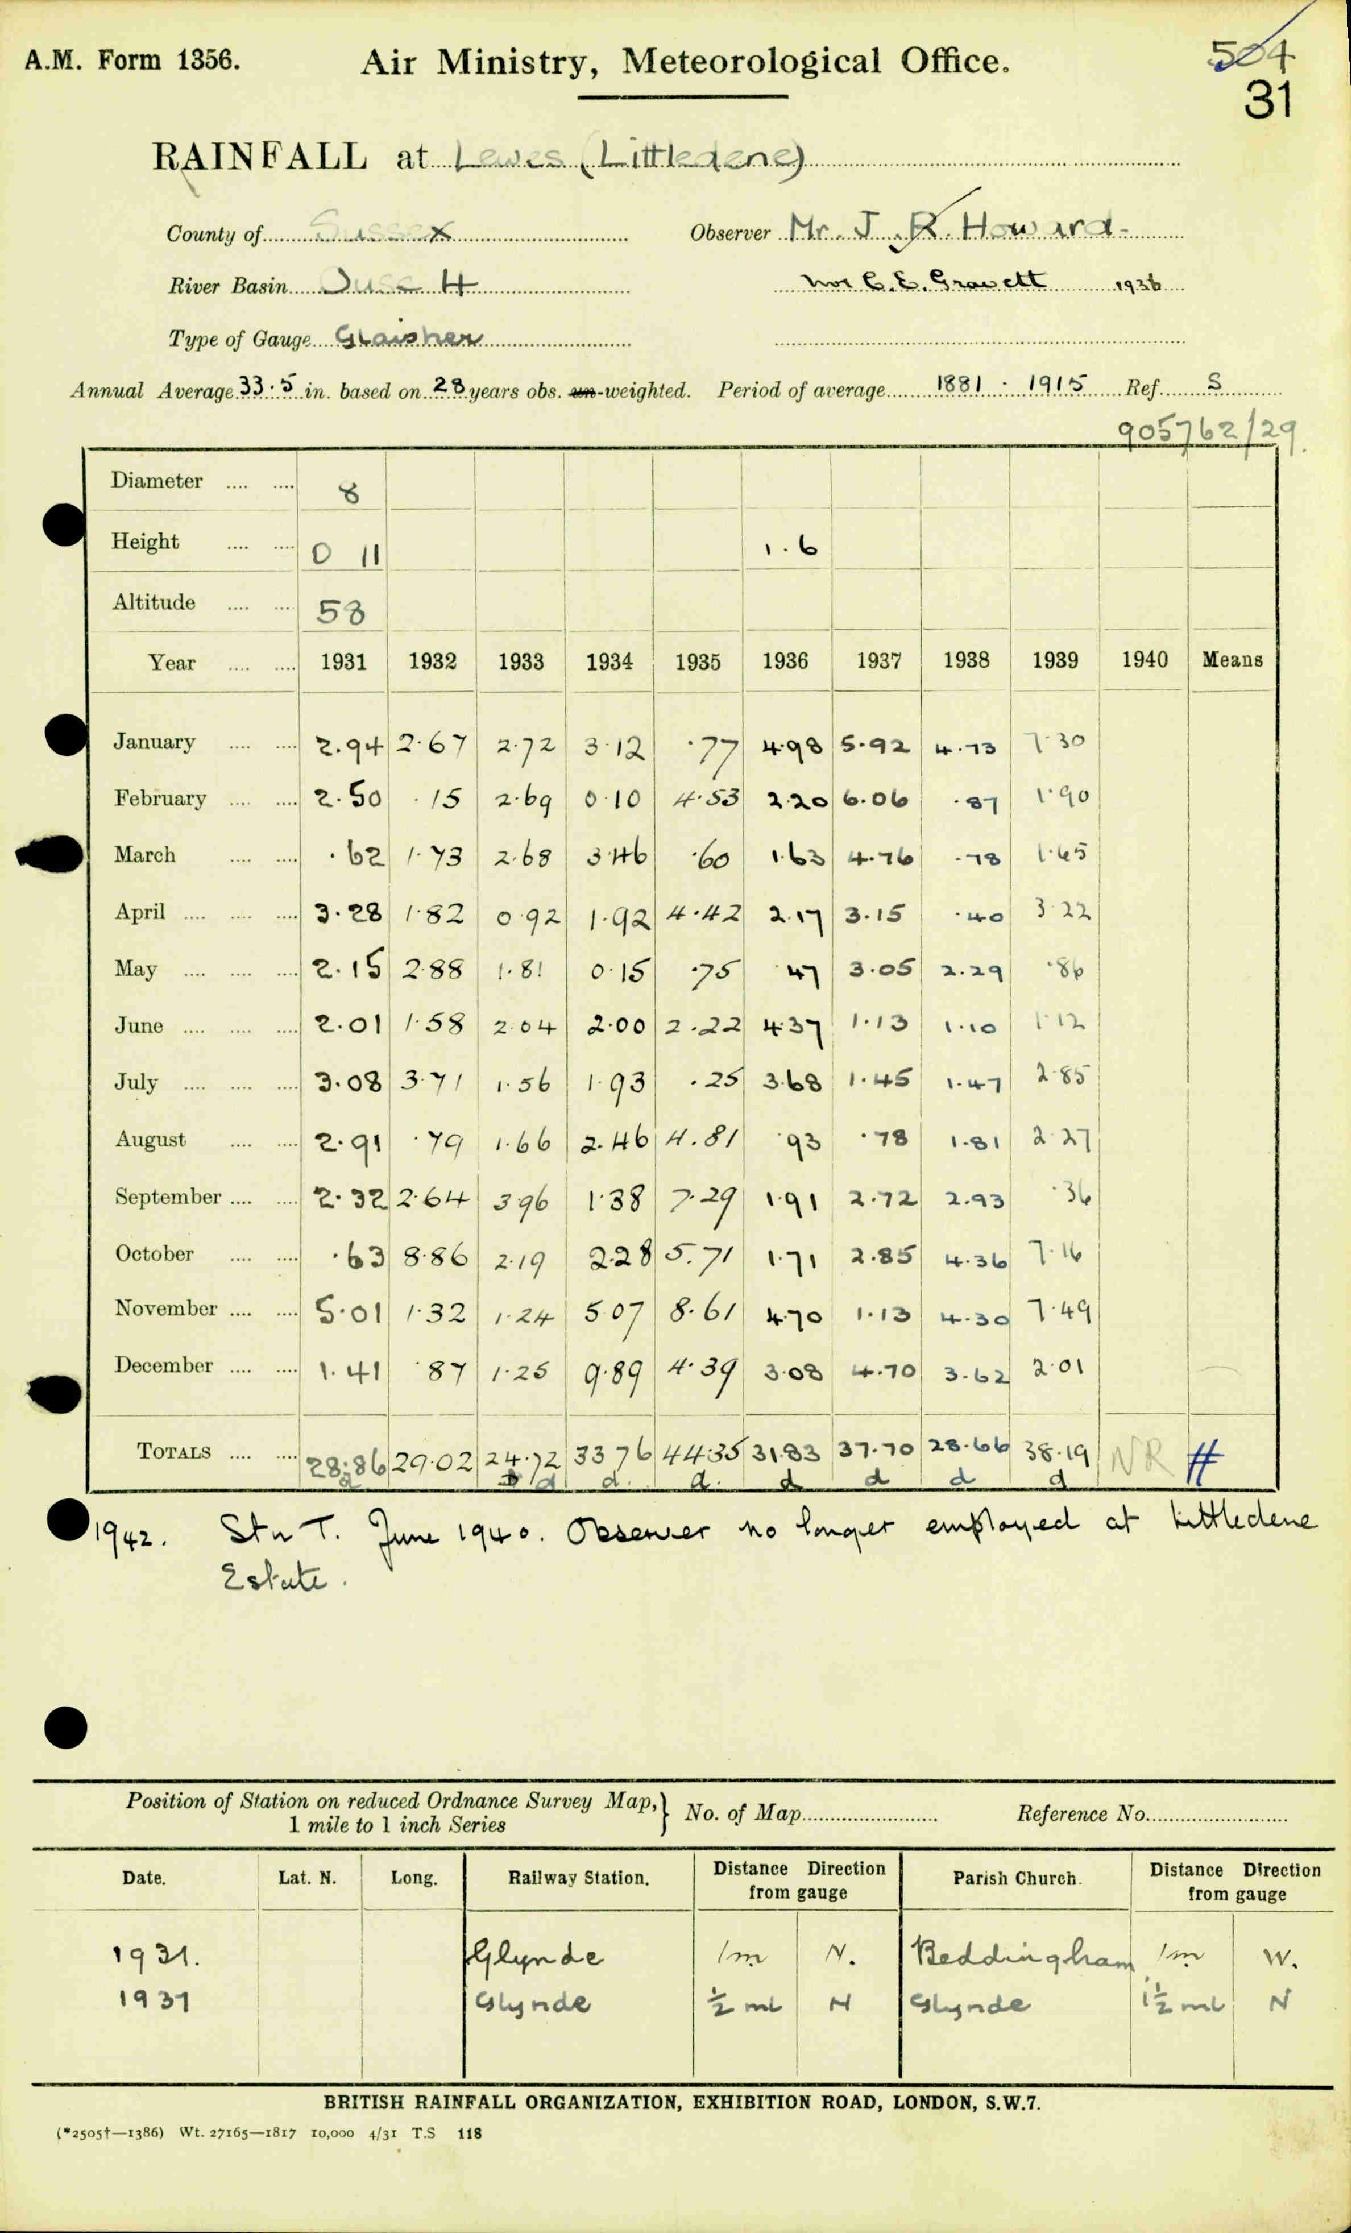 A.M. Form 1356. Air Ministry, Meteorological Office. 504
31
RAINFALL at Lewes (Littledene)
County of Sussex Observer Mr. J. R. Howard.
River Basin Ouse H C. E. Gravett 1936
Type of Gauge Glaisher
Annual Average 33.5 in. based on 28 years obs. un-weighted. Period of average 1881 - 1915 Ref. S
905762/29.
Diameter .... .... 8
Height .... .... 0 11 1.6
Altitude .... .... 58
Year .... .... 1931 1932 1933 1934 1935 1936 1937 1938 1939 1940 Means
January .... .... 2.94 2.67 2.72 3.12 .77 4.98 5.92 4.73 7.30
February .... .... 2.50 .15 2.69 0.10 4.53 2.20 6.06 .87 1.90
March .... .... .62 1.73 2.68 3.46 .60 1.63 4.76 .78 1.65
April .... .... .... 3.28 1.82 0.92 1.92 4.42 2.17 3.15 .40 3.22
May .... .... .... 2.15 2.88 1.81 0.15 .75 .47 3.05 2.29 .86
June .... .... .... 2.01 1.58 2.04 2.00 2.22 4.37 1.13 1.10 1.12
July .... .... .... 3.08 3.71 1.56 1.93 .25 3.68 1.45 1.47 2.85
August .... .... 2.91 .79 1.66 2.46 4.81 .93 .78 1.81 2.27
September .... .... 2.32 2.64 3.96 1.38 7.29 1.91 2.72 2.93 .36
October .... .... .63 8.86 2.19 2.28 5.71 1.71 2.85 4.36 7.16
November .... .... 5.01 1.32 1.24 5.07 8.61 4.70 1.13 4.30 7.49
December .... .... 1.41 .87 1.25 9.89 4.39 3.08 4.70 3.62 2.01
TOTALS .... .... 28.86 29.02 24.72 33.76 44.35 31.83 37.70 28.66 38.19 NR #
d d d d d d d d
1942. Stn T. June 1940. Observer no longer employed at Littledene
Estate.
Position of Station on reduced Ordnance Survey Map, } No. of Map Reference No.
1 mile to 1 inch Series
Date. Lat. N. Long. Railway Station. Distance Direction from gauge Parish Church. Distance Direction from gauge
1931. Glynde 1m N. Beddingham 1m W.
1937 Glynde ½ ml N Glynde 1½ ml N
BRITISH RAINFALL ORGANIZATION, EXHIBITION ROAD, LONDON, S.W.7.
(*2505†—1386) Wt. 27165—1817 10,000 4/31 T.S 118